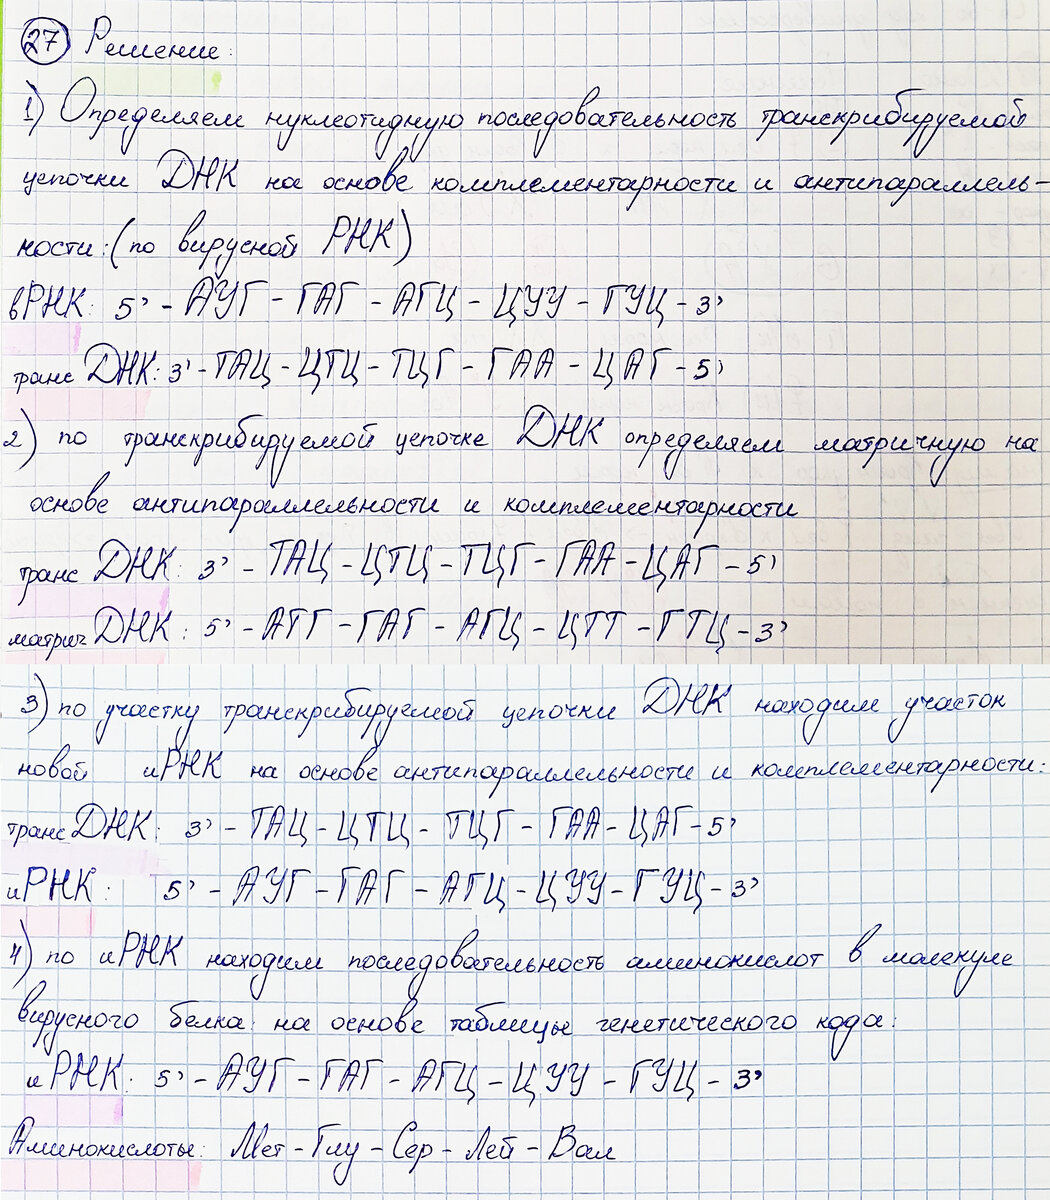 27 Решение:
1) Определяем нуклеотидную последовательность транскрибируемой
цепочки ДНК на основе комплементарности и антипараллель-
ности: (по вирусной РНК)
вРНК: 5' - АУГ - ГАГ - АГЦ - ЦУУ - ГУЦ - 3'
транс ДНК: 3' - ТАЦ - ЦТЦ - ТЦГ - ГАА - ЦАГ - 5'
2) по транскрибируемой цепочке ДНК определяем матричную на
основе антипараллельности и комплементарности
транс ДНК: 3' - ТАЦ - ЦТЦ - ТЦГ - ГАА - ЦАГ - 5'
матрич ДНК: 5' - АТГ - ГАГ - АГЦ - ЦТТ - ГТЦ - 3'
3) по участку транскрибируемой цепочки ДНК находим участок
новой иРНК на основе антипараллельности и комплементарности:
транс ДНК: 3' - ТАЦ - ЦТЦ - ТЦГ - ГАА - ЦАГ - 5'
иРНК: 5' - АУГ - ГАГ - АГЦ - ЦУУ - ГУЦ - 3'
4) по иРНК находим последовательность аминокислот в молекуле
вирусного белка: на основе таблицы генетического кода:
иРНК: 5' - АУГ - ГАГ - АГЦ - ЦУУ - ГУЦ - 3'
Аминокислоты: Мет - Глу - Сер - Лей - Вал